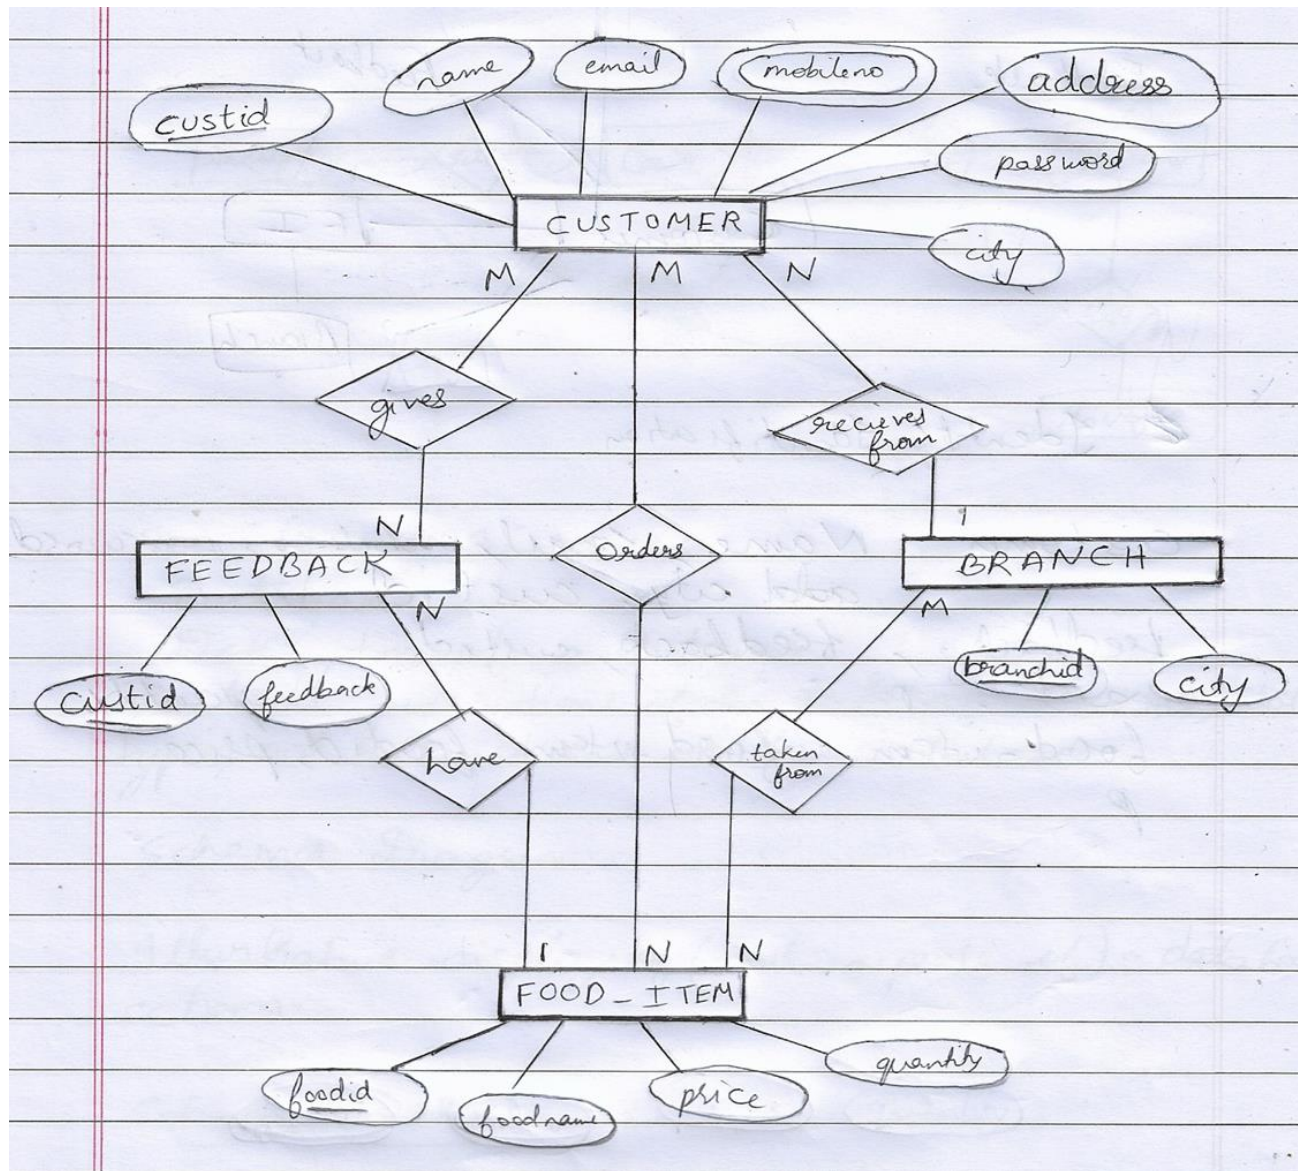 name
email
mobileno
address
custid
password
CUSTOMER
city
M
M
N
gives
recieves
from
N
1
FEEDBACK
Orders
BRANCH
N
M
custid
feedback
branchid
city
have
taken
from
1
N
N
FOOD_ITEM
foodid
foodname
price
quantity